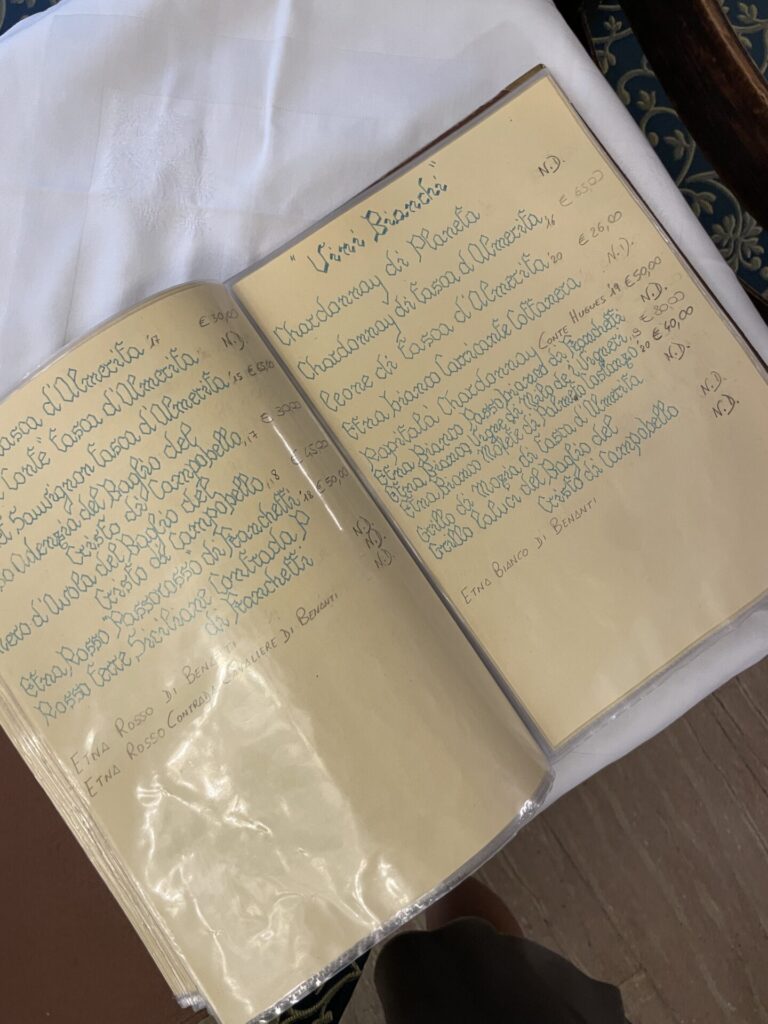 Tasca d'Almerita '17 € 50,00
Conte" Tasca d'Almerita N.D.
Sauvignon Tasca d'Almerita '15 € 65,00
Adenzia del Baglio del
Cristo di Campobello '17 € 30,00
Nero d'Avola del Baglio del
Cristo di Campobello '18 € 45,00
Etna Rosso "Passorosso" di Franchetti '18 € 50,00
Rosso Terre Siciliane Contrada P
di Franchetti N.D.
ETNA ROSSO DI BENANTI N.D.
ETNA ROSSO CONTRADA CAVALIERE DI BENANTI N.D.
"Vini Bianchi"
Chardonnay di Planeta N.D.
Chardonnay di Tasca d'Almerita '16 € 65,00
Leone di Tasca d'Almerita '20 € 26,00
Etna bianco Carricante Cottanera N.D.
Rapitalà Chardonnay CONTE HUGUES 19 € 50,00
Etna Bianco Passobianco di Franchetti N.D.
Etna Bianco Vigne di Milo dei Vigneri '19 € 80,00
Etna Bianco di Palmento Costanzo '20 € 40,00
Grillo di Mozia di Tasca d'Almerita N.D.
Grillo Laluci del Baglio del
Cristo di Campobello N.D.
ETNA BIANCO DI BENANTI N.D.